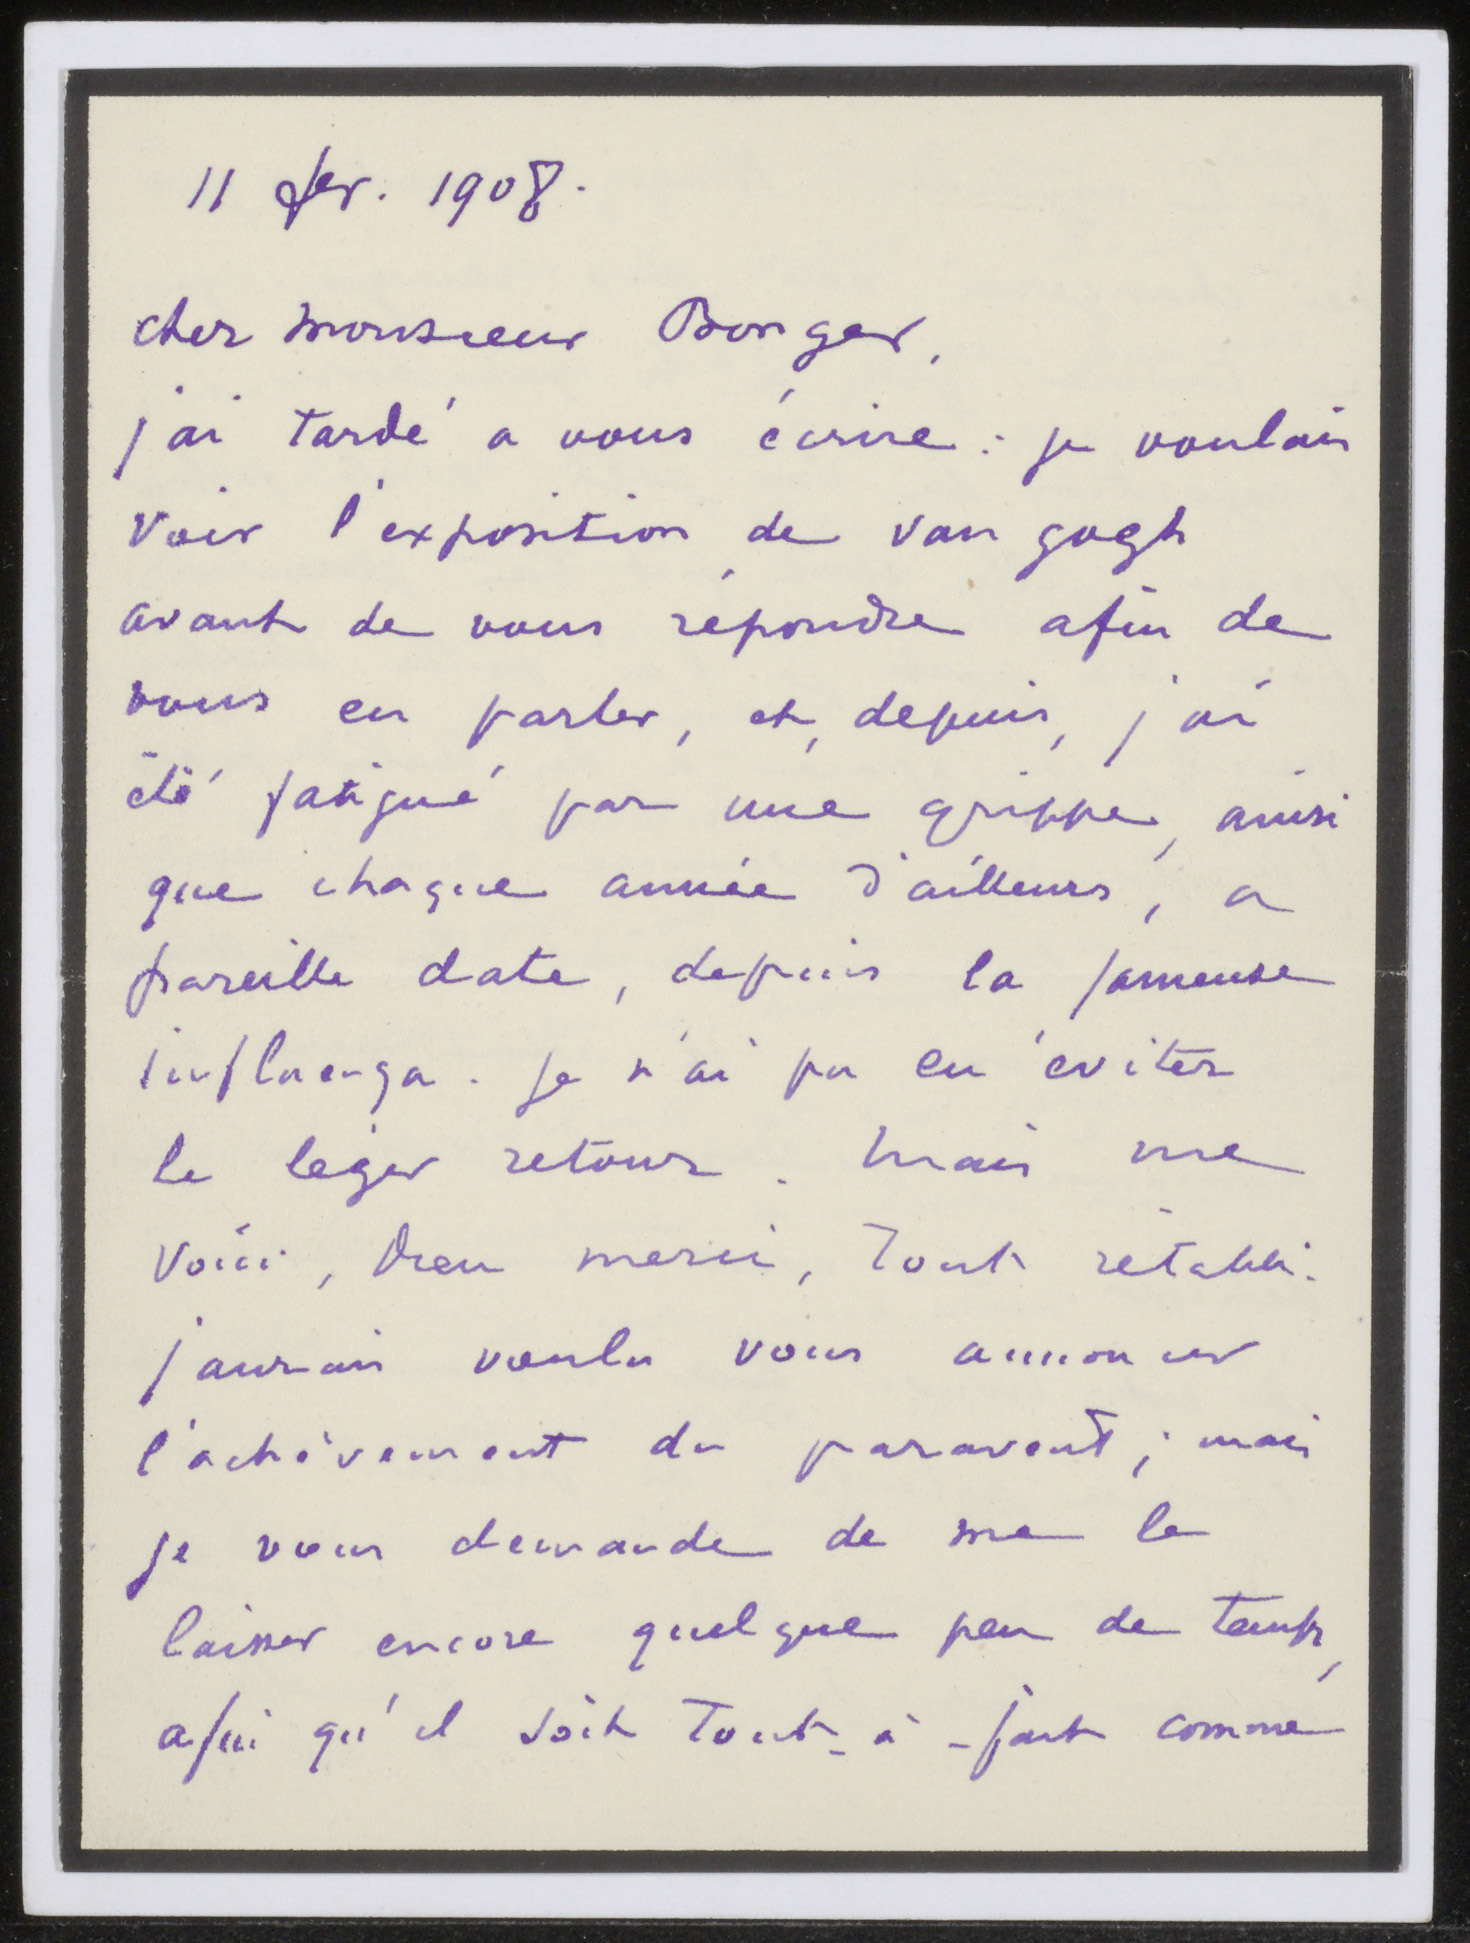 11 fev. 1908.
cher monsieur Bonger,
j'ai tardé a vous écrire : je voulais
voir l'exposition de van gogh
avant de vous répondre afin de
vous en parler, et, depuis, j'ai
été fatigué par une grippe, ainsi
que chaque année d'ailleurs, a
pareille date, depuis la fameuse
influenza. je n'ai pu en éviter
le léger retour. mais me
voici, Dieu merci, tout rétabli.
j'aurais voulu vous annoncer
l'achèvement du paravent ; mais
je vous demande de me le
laisser encore quelque peu de temps,
afin qu'il soit tout-à-fait comme